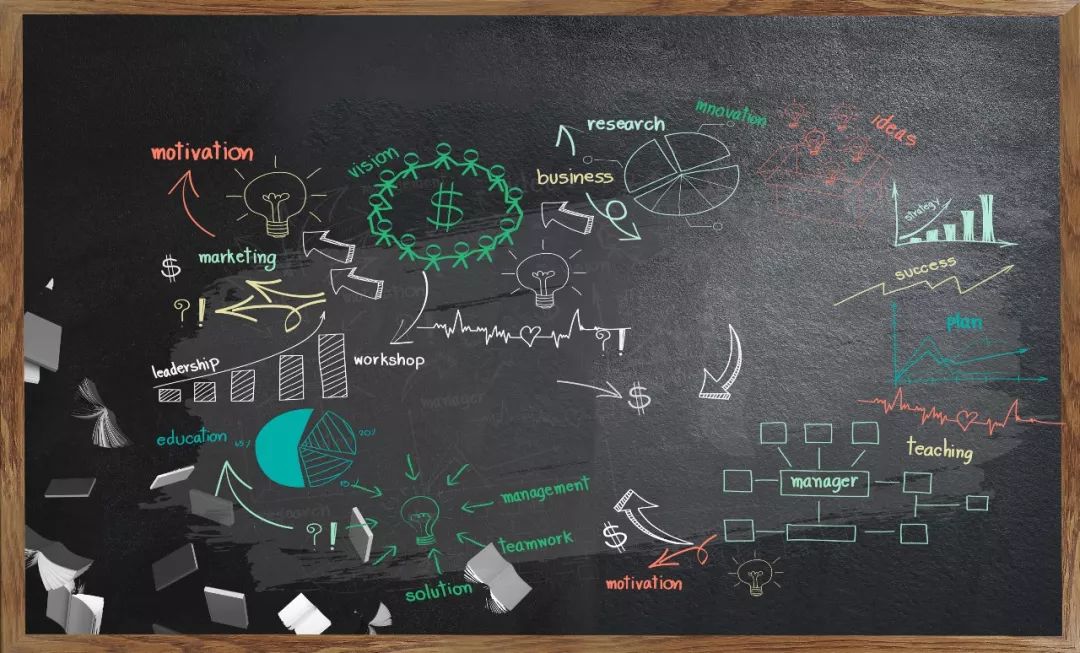 motivation
vision
research
mnovation
ideas
business
$
strategy
marketing
$
success
? !
? !
plan
leadership
workshop
$
education
20%
teaching
manager
management
? !
teamwork
$
solution
motivation